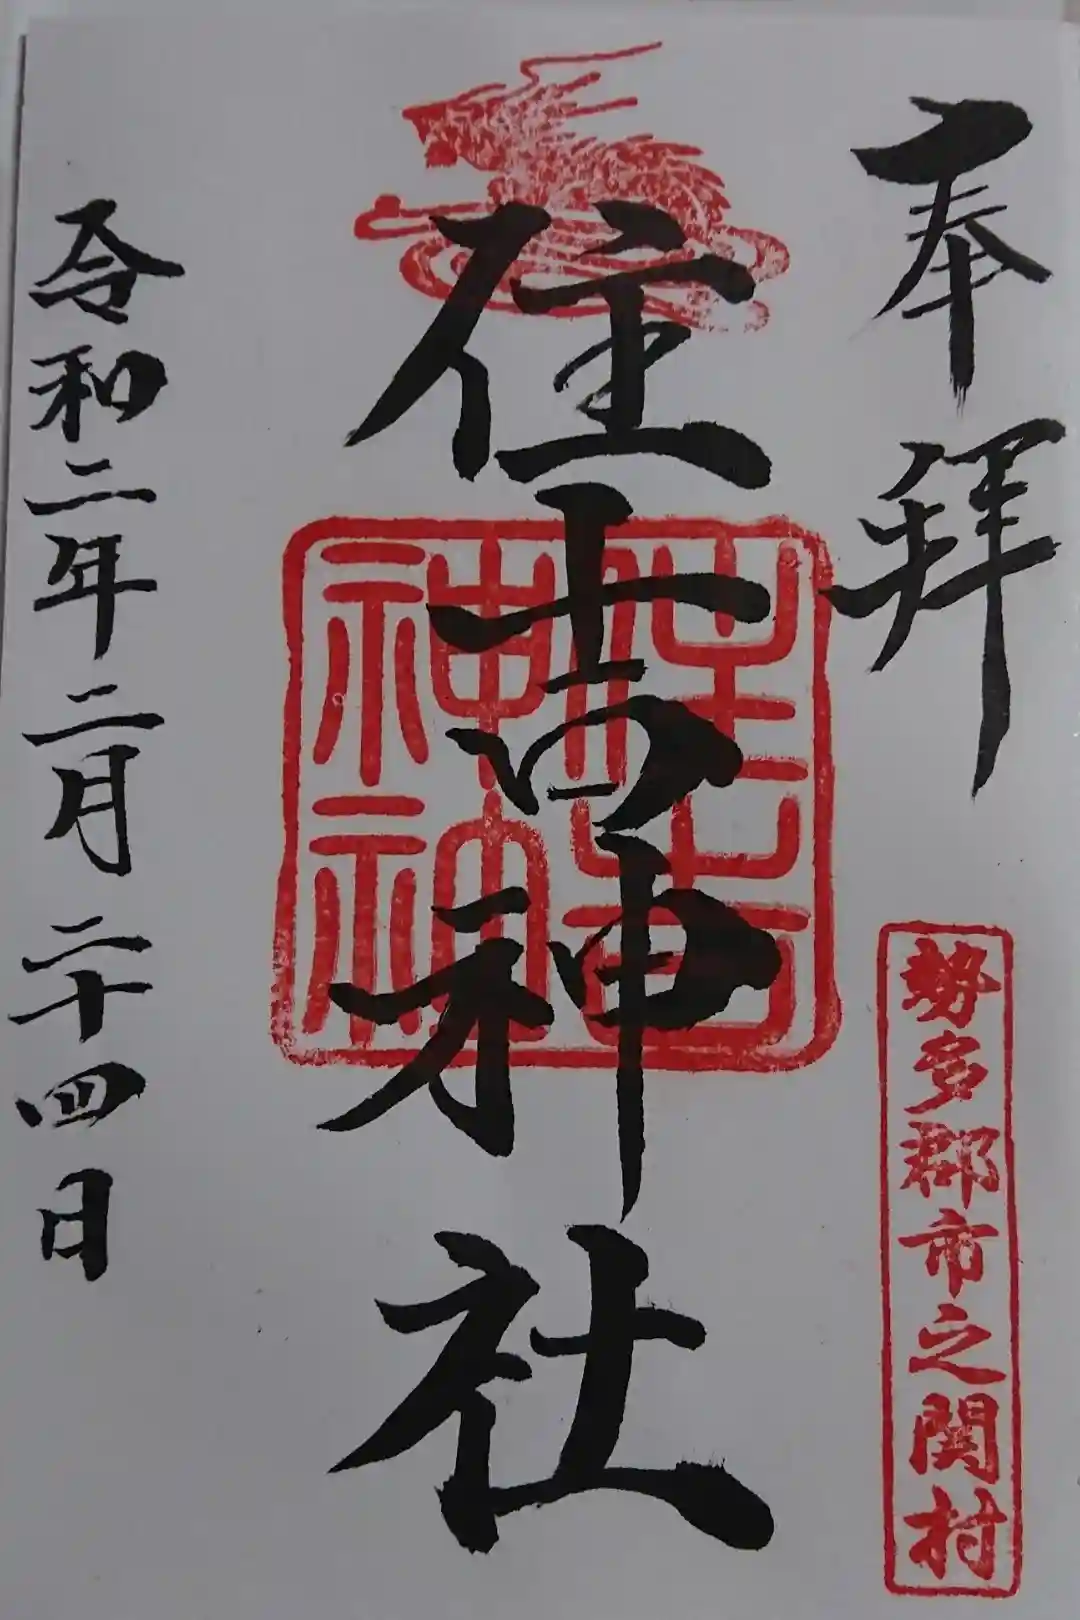 奉拝
勢多郡市之関村
住吉神社
住吉
神社
令和二年二月二十四日